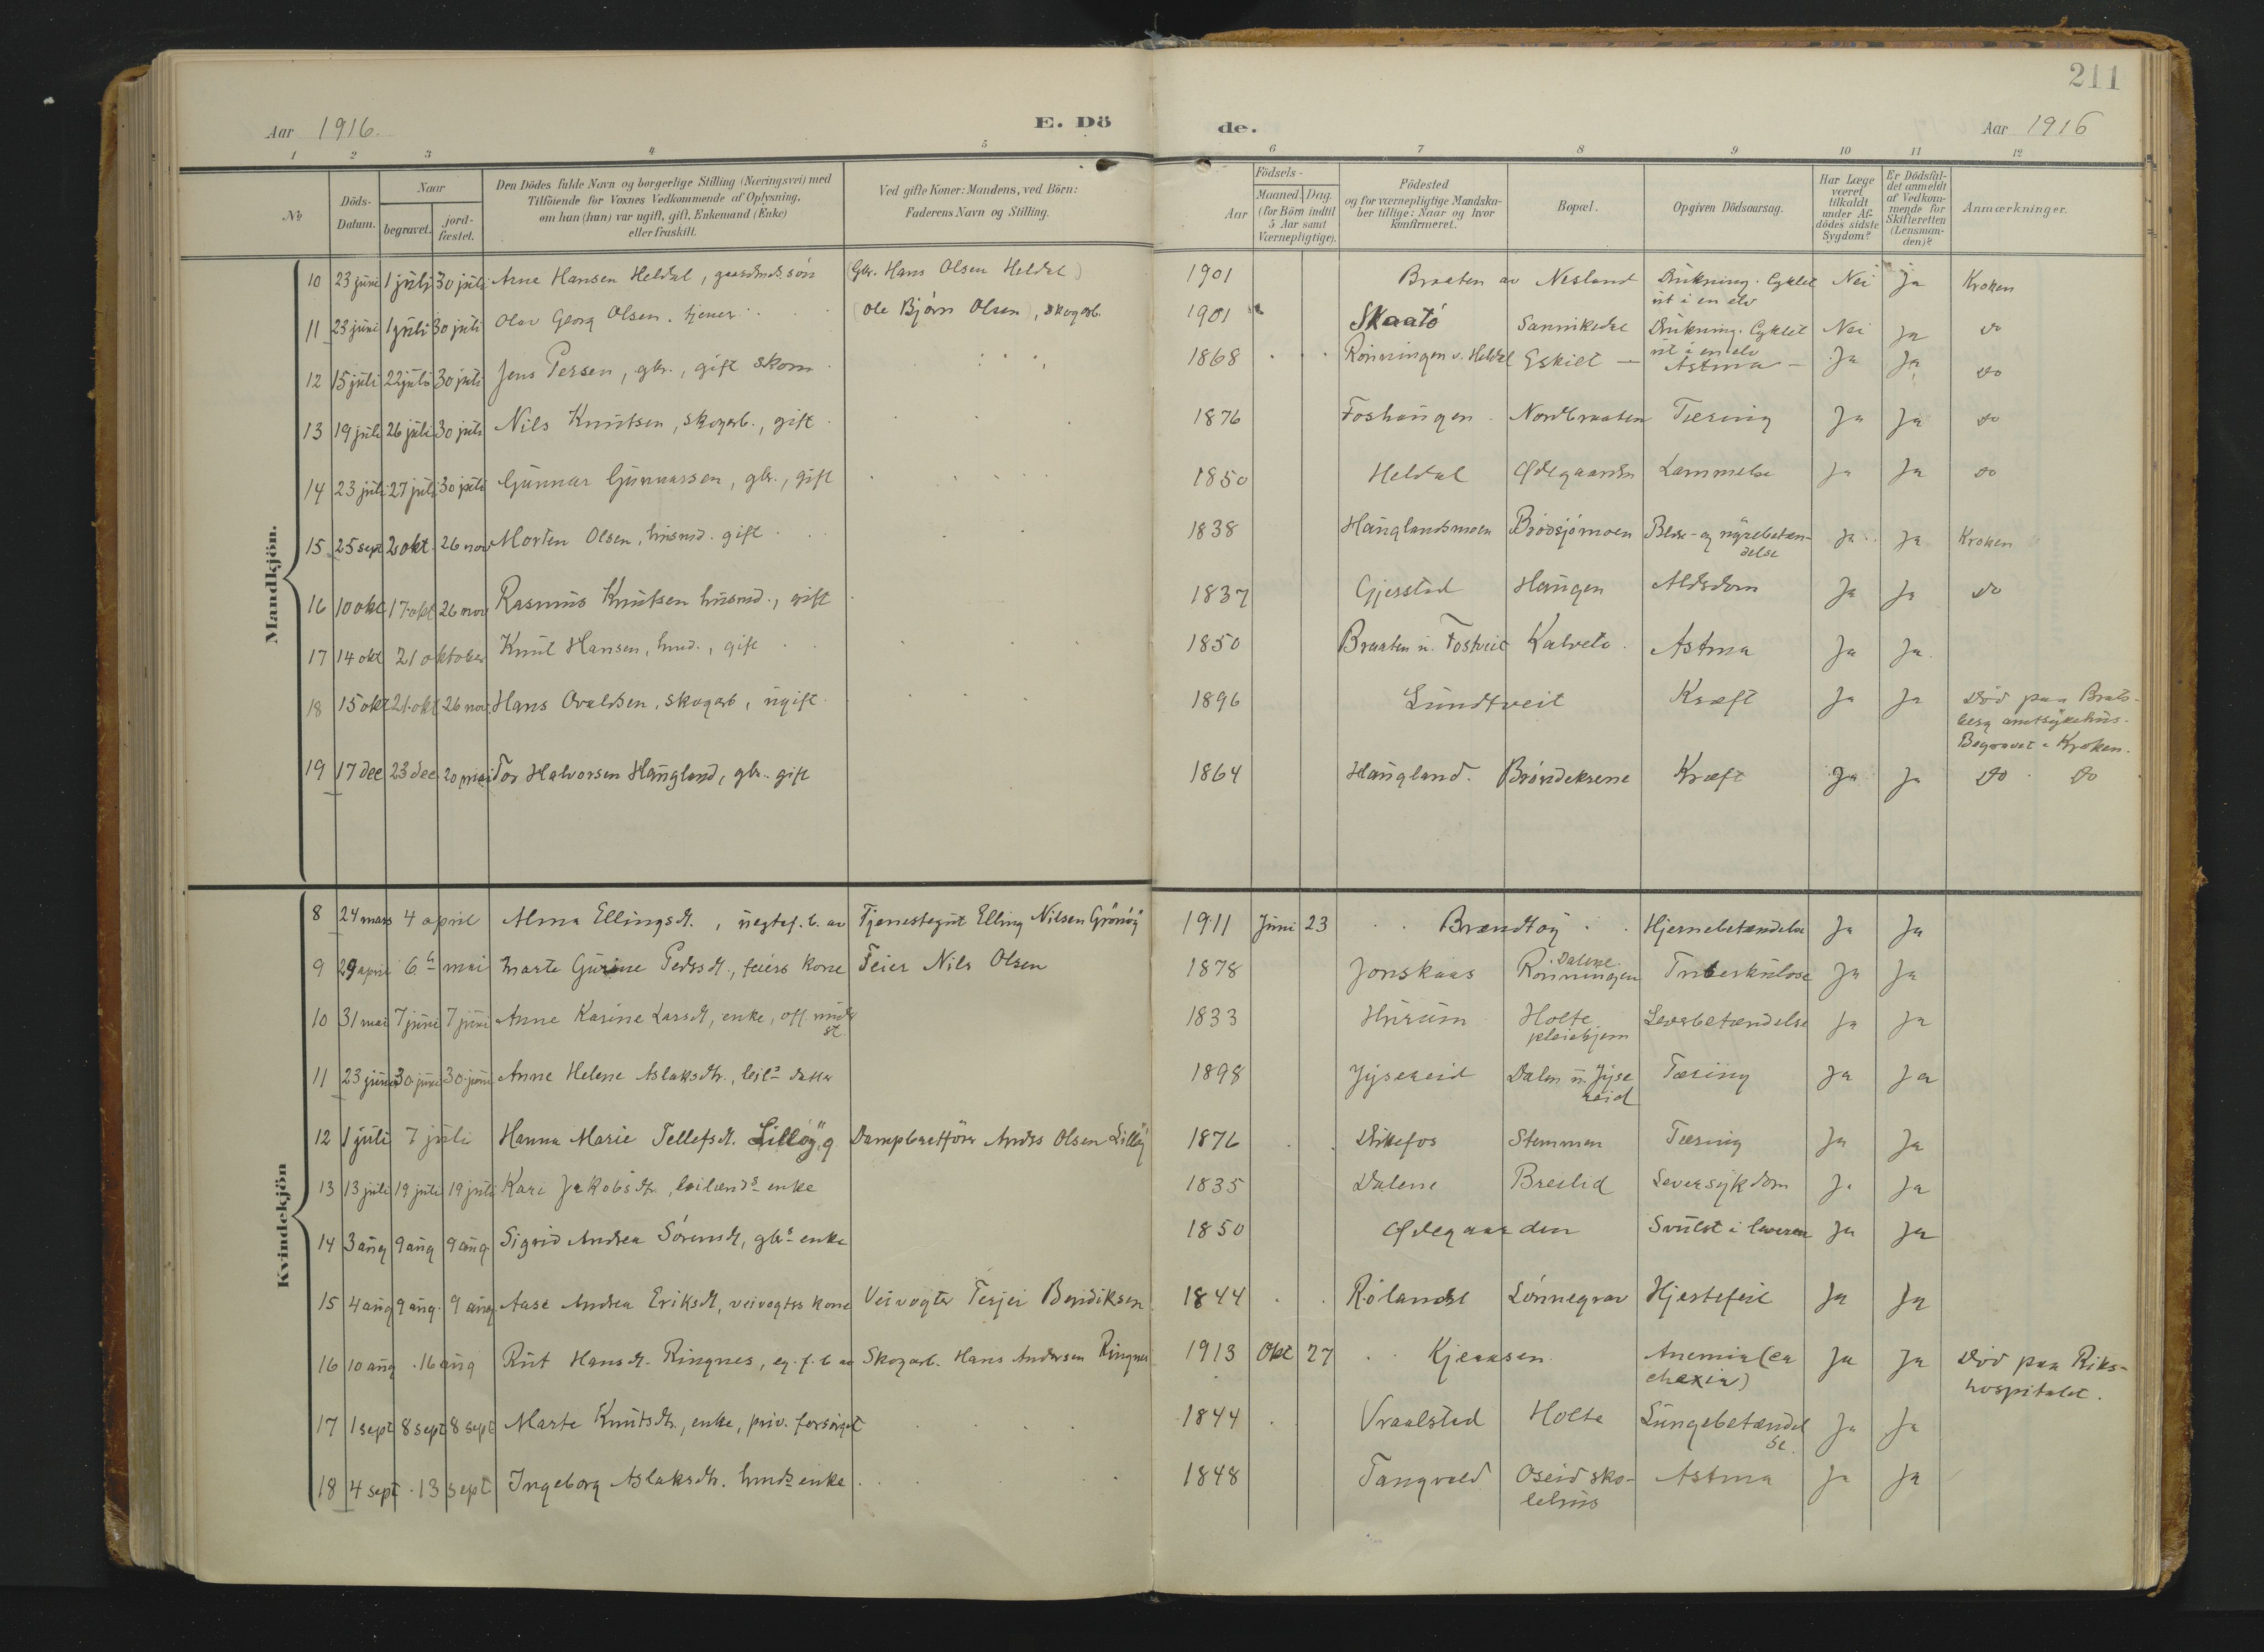 211
Aar 1916. E. Dö de. Aar 1916
1 2 3 4 5 6 7 8 9 10 11 12
№
Döds-
Datum.
Naar
begravet.
jord-
fæstet.
Den Dödes fulde Navn og borgerlige Stilling (Næringsvei) med
Tilföiende for Voxnes Vedkommende af Oplysning,
om han (hun) var ugift, gift, Enkemand (Enke)
eller fraskilt.
Ved gifte Koner: Mandens, ved Börn:
Faderens Navn og Stilling.
Födsels-
Aar
Maaned. Dag.
(for Börn indtil
5 Aar samt
Værnepligtige).
Födested
og for værnepligtige Mandska-
ber tillige: Naar og hvor
konfirmeret.
Bopæl.
Opgiven Dödsaarsag.
Har Læge
været
tilkaldt
under Af-
dödes sidste
Sygdom?
Er Dödsfal-
det anmeldt
af Vedkom-
mende for
Skifteretten
(Lensman-
den)?
Anmærkninger.
Mandkjön.
10 23 juni 1 juli 30 juli Arne Hansen Heldal, gaardmds. sön (Gbr. Hans Olsen Heldal) 1901 Braaten av Nesland Drukning. Cyklet Nei Ja Kroken
ut i en elv
11 23 juni 1 juli 30 juli Olav Georg Olsen. tjener (Ole Björn Olsen), skogarb. 1901 Skaatö Sannikedal Drukning. Cyklet Nei Ja do
ut i en elv
12 15 juli 22 juli 30 juli Jens Persen, gbr., gift skom 1868 Rönningen u. Heldal Eskilt Astma Ja Ja do
13 19 juli 26 juli 30 juli Nils Knutsen, skogarb., gift 1876 Foshaugen Nordbraaten Tæring Ja Ja do
14 23 juli 27 juli 30 juli Gunnar Gunnarssen, gbr., gift 1850 Heldal Ødegaarden Lammelse Ja Ja do
15 25 sept 2 okt. 26 nov Morten Olsen, husmd. gift 1838 Hauglandsmoen Brödsjömoen Blære- og nyrebetæn- Ja Ja Kroken
delse
16 10 okt 17 okt 26 nov Rasmus Knutsen husmd., gift 1837 Gjerstad Haugen Aldsdom Ja Ja do
17 14 okt 21 oktober Knut Hansen, hmd., gift 1850 Braaten u. Fostveit Kalveto Astma Ja Ja
18 15 okt 21 okt 26 nov Hans Ovaldsen, skogarb, ugift 1896 Lundtveit Kræft Ja Ja Död paa Brats-
berg amtsykehus.
Begravet i Kroken.
19 17 dec 23 dec 20 mai Tor Halvorsen Haugland, gbr. gift 1864 Haugland. Bröndeksene Kræft Ja Ja do do
Kvindekjön
8 24 mars 4 april Alma Ellingsdt., uegtef. b. av Tjenestegut Elling Nilsen Grönöy 1911 Juni 23 Brændtöy Hjernebetændelse Ja Ja
9 29 april 6 mai Marte Gurine Pedsdt., feiers kone Feier Nils Olsen 1878 Jonskaas Rönningen Dalene Tuberkulose Ja Ja
10 31 mai 7 juni 7 juni Anne Karine Larsdt, enke, off. underst. 1833 Hurum Holte pleiehjem Leverbetændelse Ja Ja
11 23 juni 30 juni 30 juni Anne Helene Aslaksdtr., leil.s datter 1898 Jysereid Dalen u. Jysereid Tæring Ja Ja
12 1 juli 7 juli Hanna Marie Tellefsdt. Lillöy, g Dampbaatförer Andrs Olsen Lillöy 1876 Dikefos Stemmen Tæring Ja Ja
13 13 juli 19 juli 19 juli Kari Jakobsdtr., leilænds enke 1835 Dalene Breilid Leversykdom Ja Ja
14 3 aug 9 aug 9 aug. Sigrid Andrea Sörensdt, gbr.s enke 1850 Ødegaarden Svulst i leveren Ja Ja
15 4 aug 9 aug. 9 aug Aase Andrea Eriksdt, veivogters kone Veivogter Terjei Bendiksen 1844 Rölandsl Lönnegrav Hjertefeil Ja Ja
16 10 aug 16 aug Rut Hansdt. Ringnes, eg. f. b av Skogarb. Hans Andersen Ringnes 1913 Okt 27 Kjeaasen Anemia (ca Ja Ja Död paa Riks-
chexia) hospitalet.
17 1 sept 8 sept 8 sept Marte Knutsdtr., enke, priv. forsörget 1844 Vraalstad Holte Lungebetændel Ja Ja
se.
18 4 sept 13 sept Ingeborg Aslaksdtr. hmds enke 1848 Tangvald Oseid sko- Astma Ja Ja
lehus